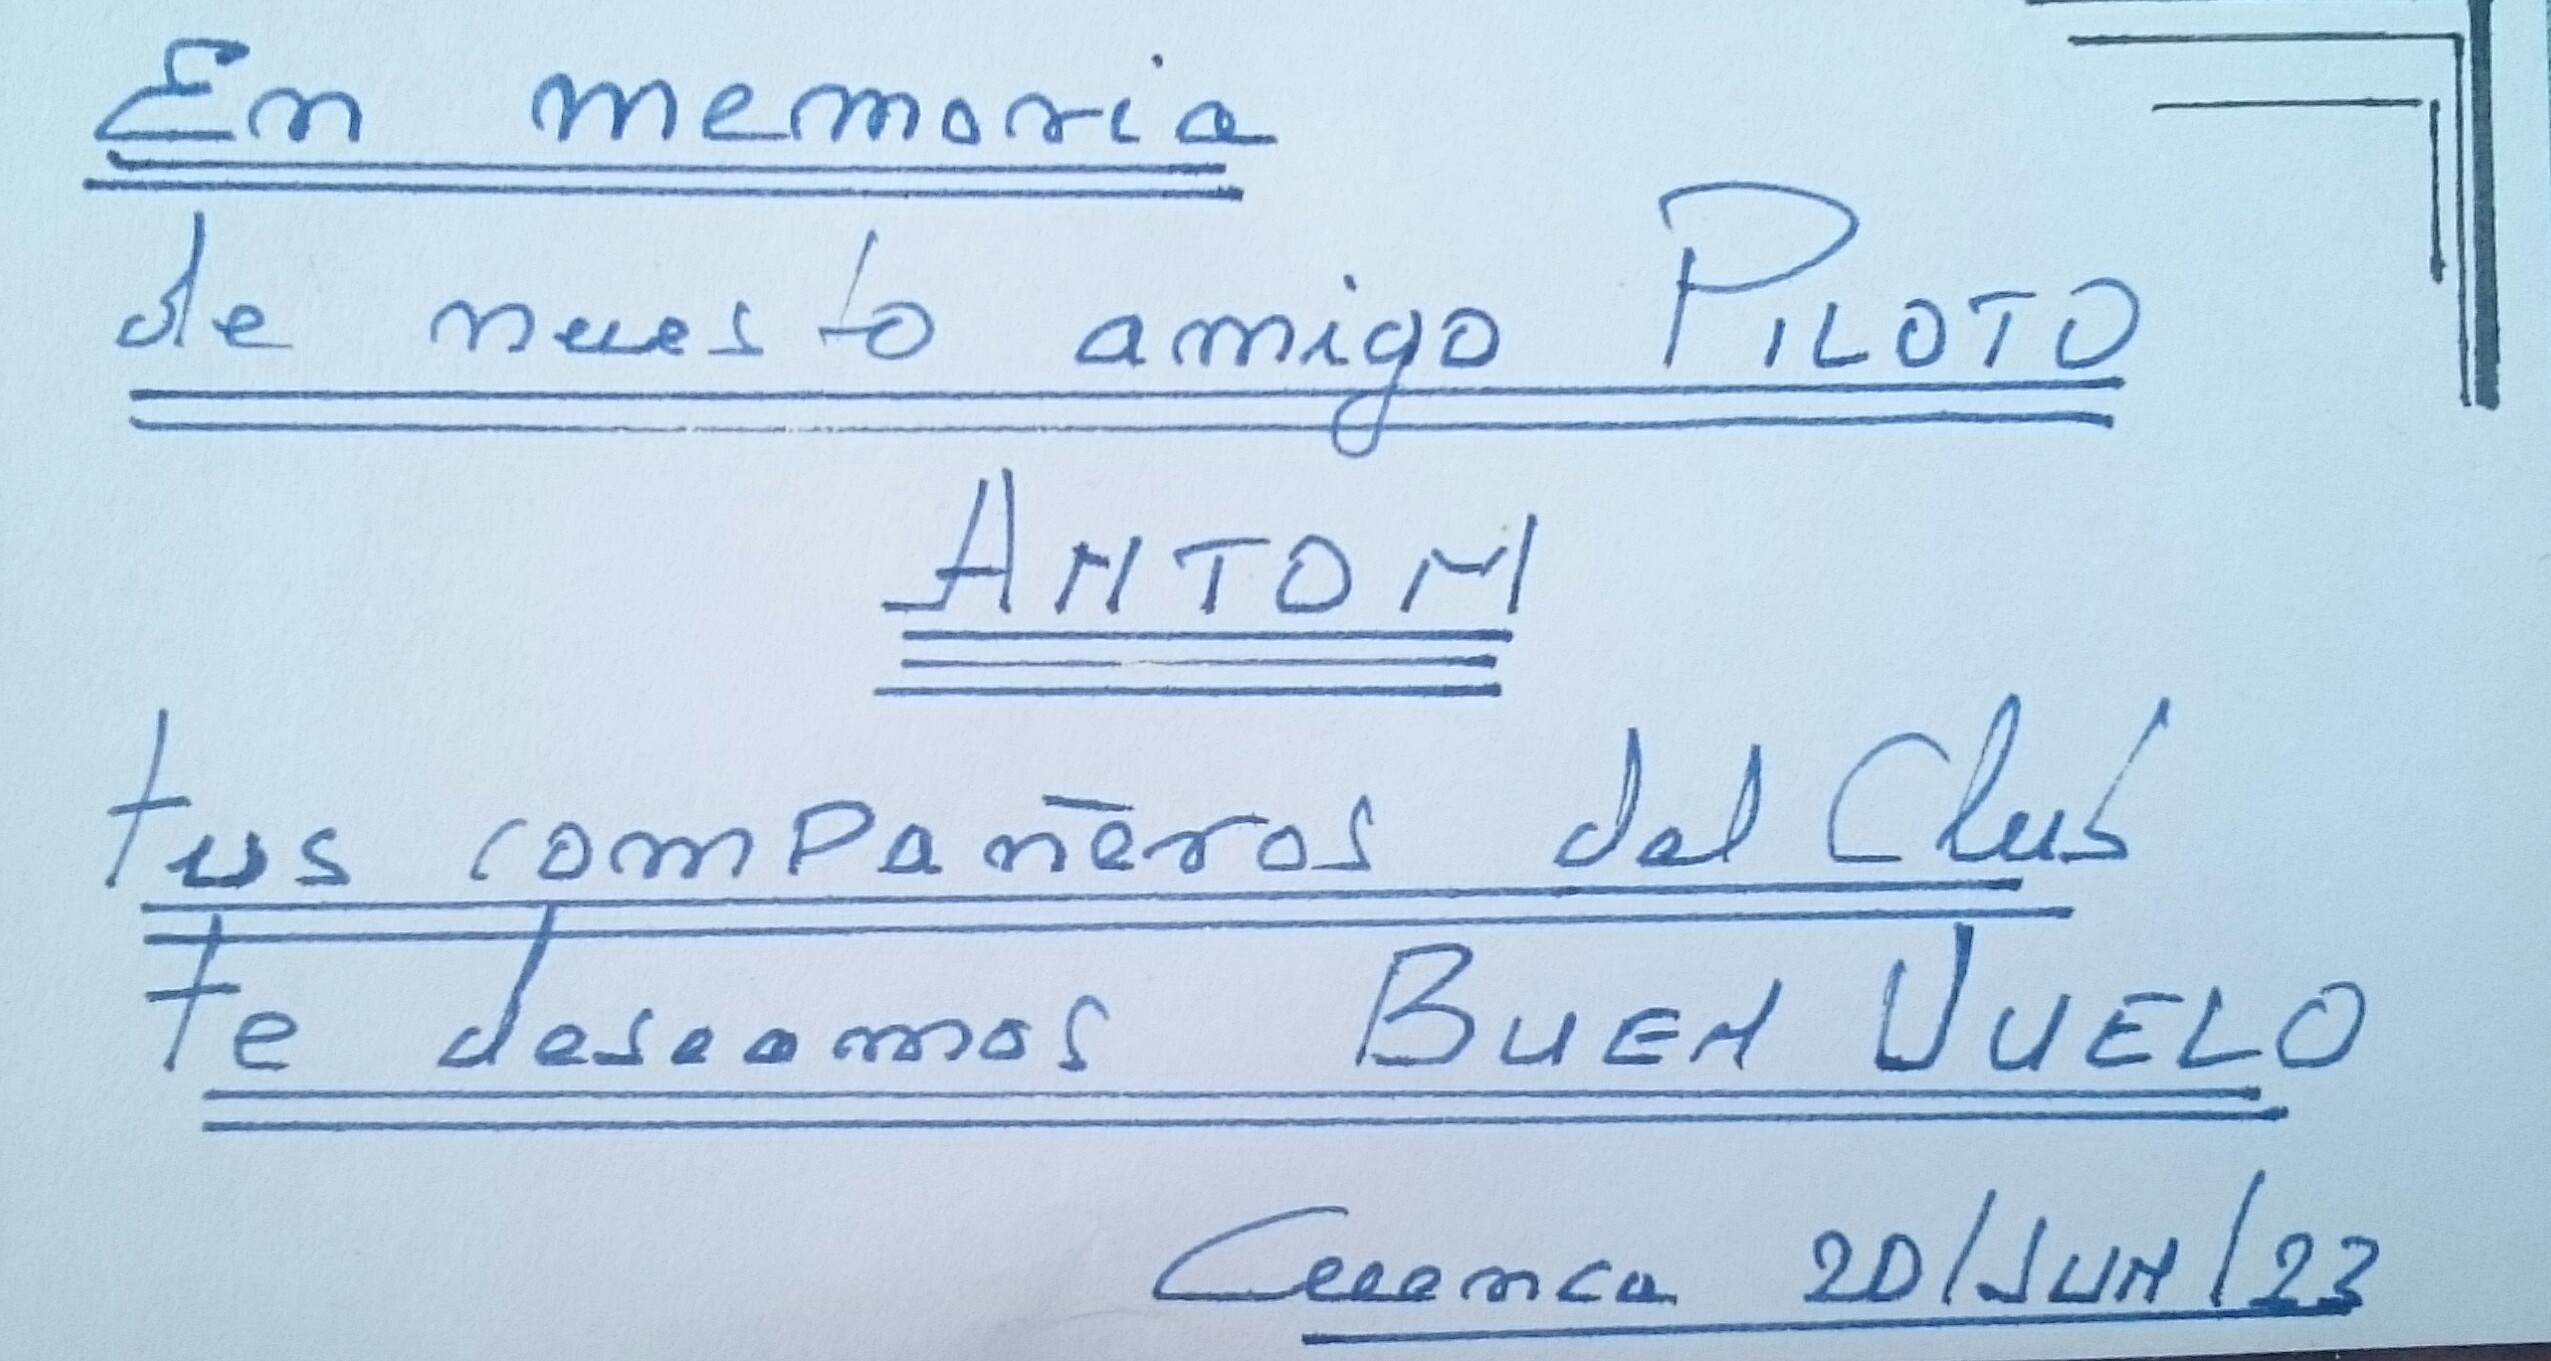 En memoria
de nuesto amigo PILOTO
ANTON
tus compañeros del Club
te deseamos BUEN VUELO
Cuenca 20/JUN/23